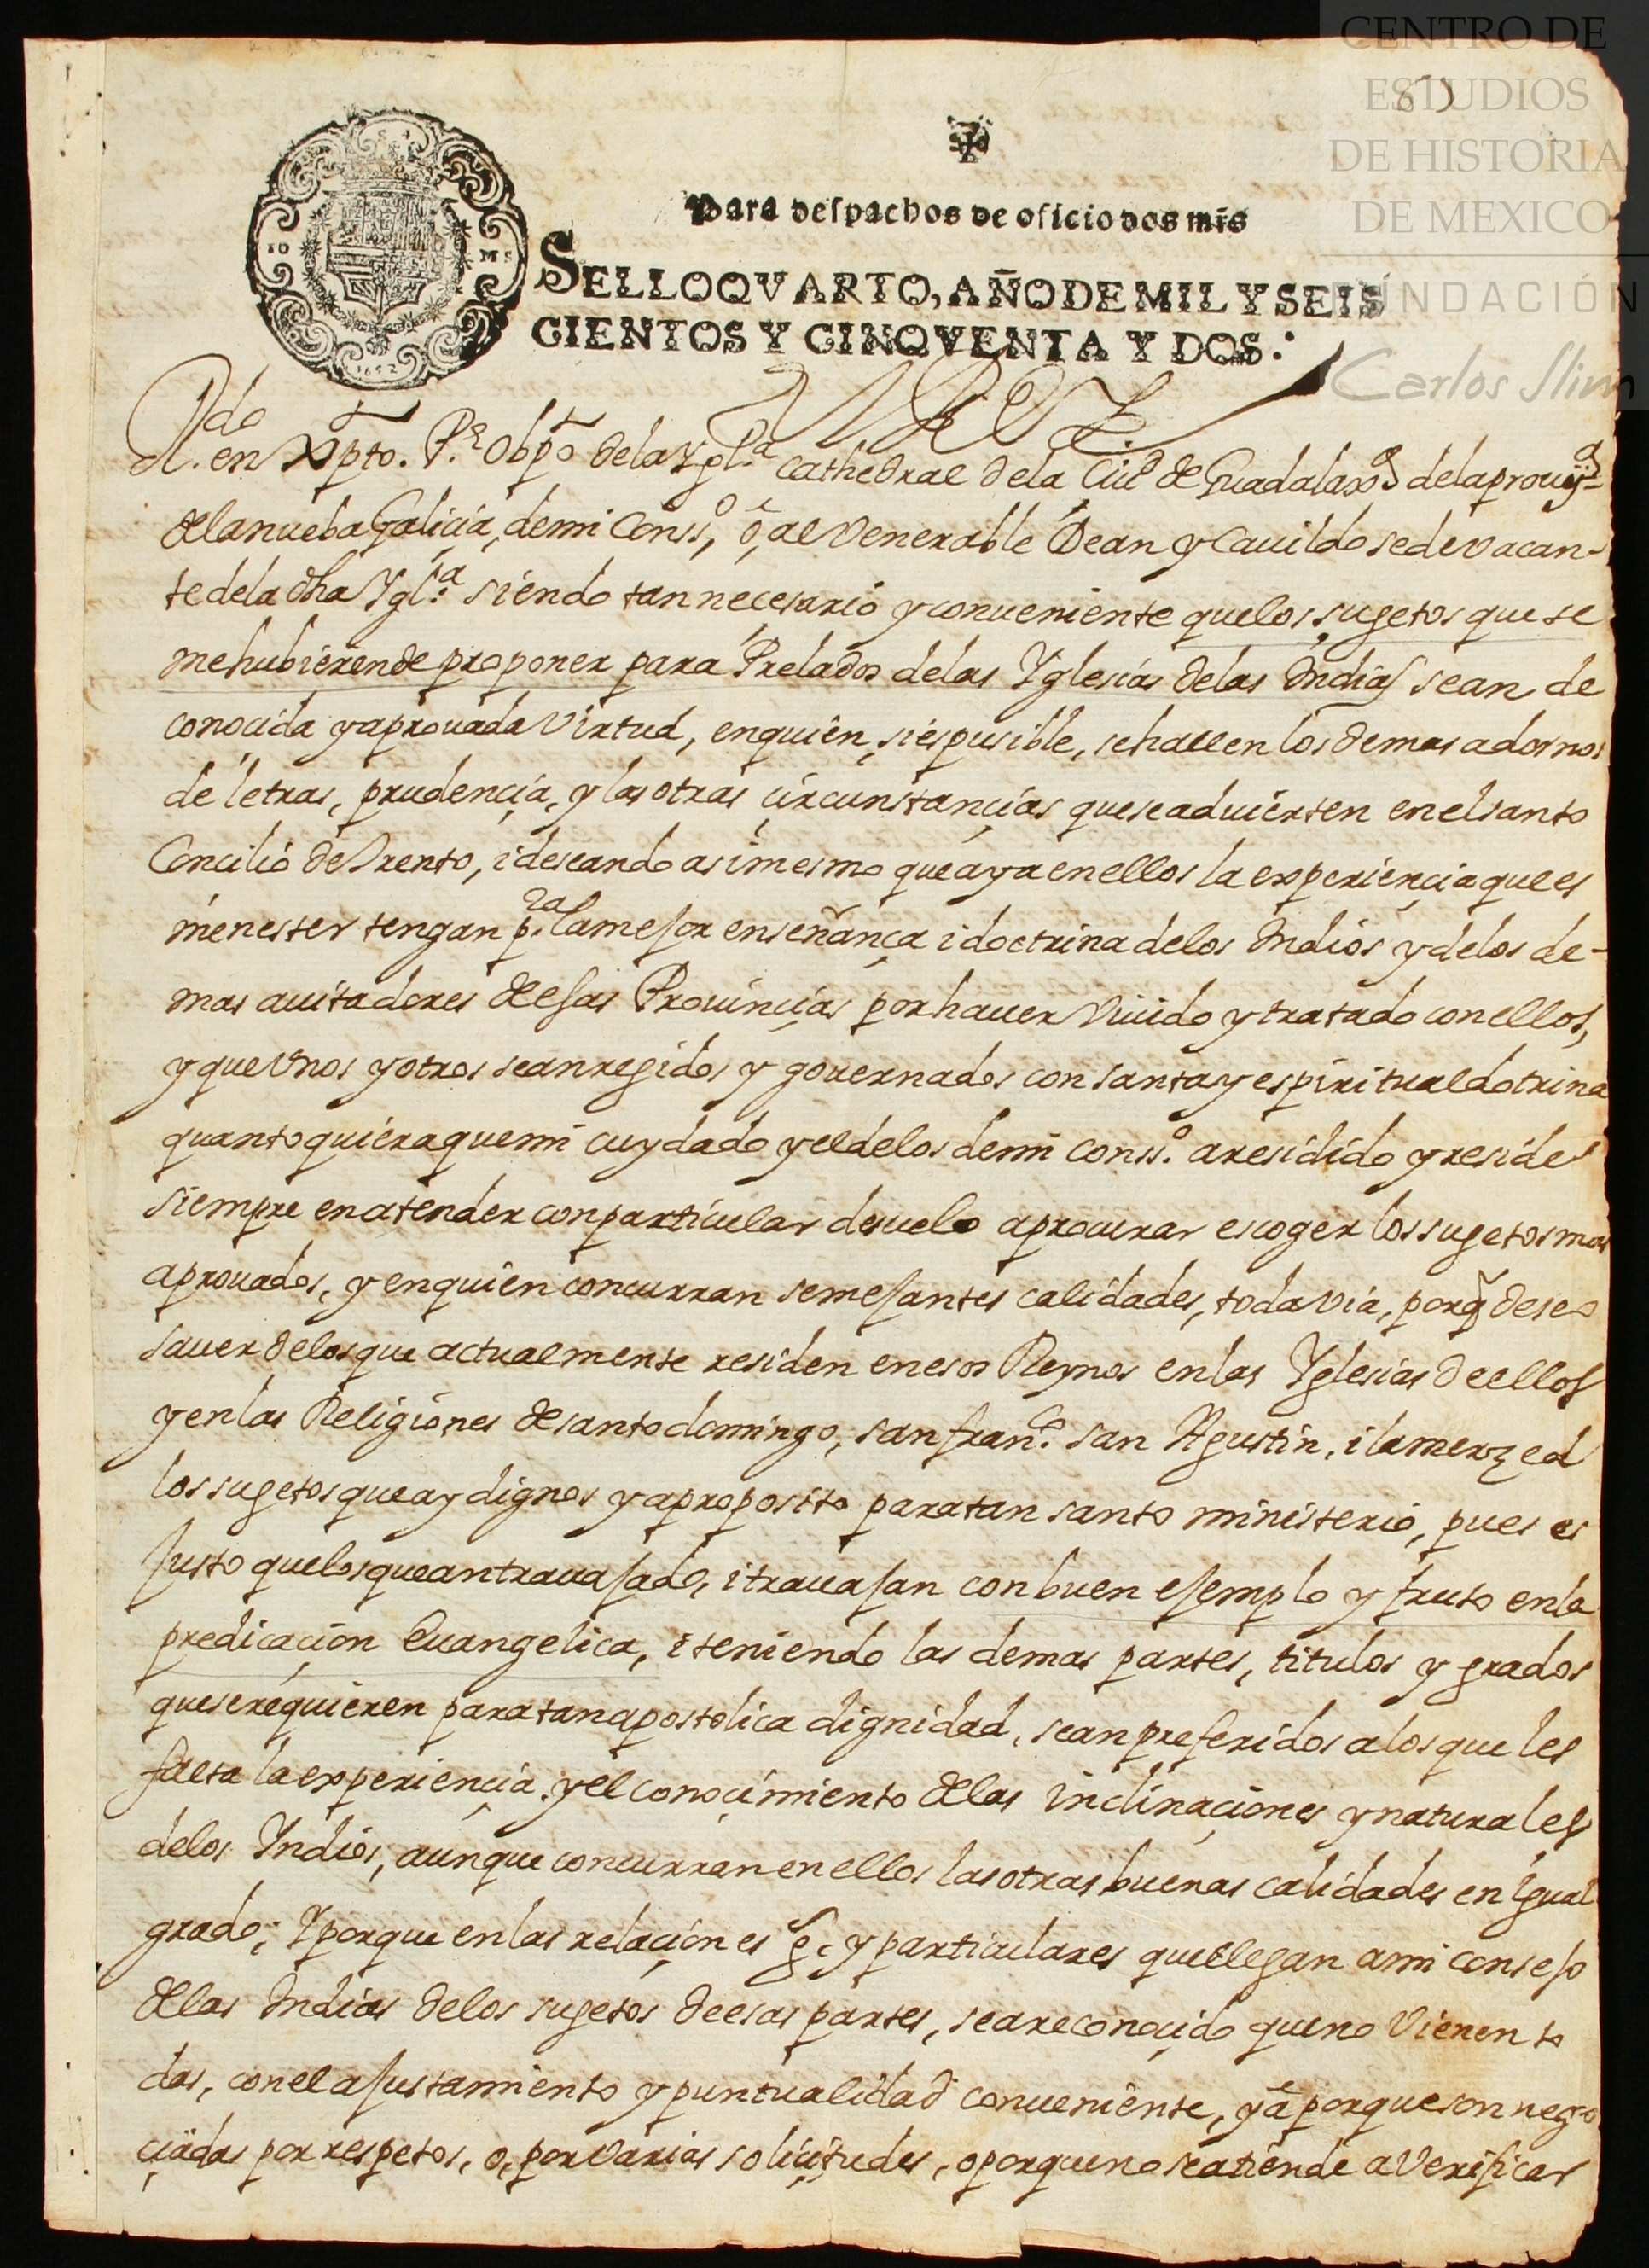 CENTRO DE
ESTUDIOS
DE HISTORIA
DE MEXICO
FUNDACIÓN
Carlos Slim
Para despachos de oficio dos mrs
SELLO QVARTO, AÑO DE MIL Y SEIS
CIENTOS Y CINQVENTA Y DOS.
10 MS
1652
El Rey
Rdo. en Xpto. Pe. Obpo de la Ygl.a cathedral de la Ciud de Guadalaxa de la prouya
de la nueba Galicia, de mi Conss.o, o, al Venerable Dean y Cauildo sede vacan-
te de la dha Ygl.a siendo tan necesario y conueniente que los sugetos que se
me hubieren de proponer para Prelados de las Yglesias de las Indias sean de
conocida y aprouada Virtud, en quien, si es pusible, se hallen los demas adornos
de letras, prudençia, y las otras çircunstançias que se aduierten en el santo
Concilio de Trento, i deseando asi mesmo que aya en ellos la experiençia que es
menester tengan p.ra la mejor enseñança i doctrina de los Indios y de los de-
mas auitadores de esas Prouinçias por hauer Viuido y tratado con ellos,
y que Vnos y otros sean regidos y gouernados con santa y espiritual dotrina
quanto quiera que mi cuydado y el de los de mi Conss.o a residido y reside
siempre en atender con particular desuelo a procurar escoger los sugetos mas
aprouados, y en quien concurran semejantes calidades, toda via, porq̃ deseo
sauer de los que actualmente residen en esos Reynos en las Yglesias de ellos
y en las Religiones de santo domingo, san fran.co san Agustin, i la merzed
los sugetos que ay dignos y a proposito para tan santo ministerio, pues es
justo que los que an trauajado, i trauajan con buen ejemplo y fruto en la
predicaçion Euangelica, i teniendo las demas partes, titulos y grados
que se requieren para tan apostolica dignidad, sean preferidos a los que les
falta la experiençia, y el conoçimiento de las inclinaçiones y naturales
de los Yndios, aunque concurran en ellos las otras buenas calidades en igual
grado; Y porque en las relaçiones g.s y particulares que llegan a mi consejo
de las Indias de los sugetos de esas partes, se a reconoçido que no Vienen to
das, con el ajustamiento y puntualidad conueniente, ya porque son nego
çiadas por respetos, o, por varias soliçitudes, o porque no se atiende a Verificar